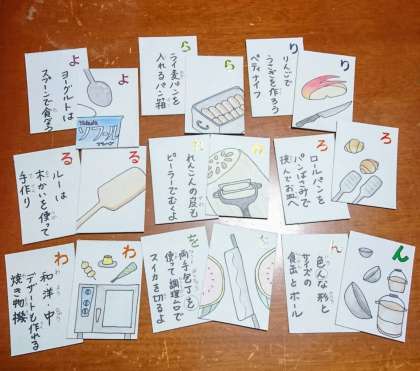 よ
ヨーグルトは
スプーンで食べよう
よ
ソフール
ら
ライ麦パンを
入れるパン箱
ら
り
りんごで
うさぎを作ろう
ペティナイフ
り
る
ルーは
を使って
手作り
る
れ
れんこんの皮も
ピーラーでむくよ
れ
ろ
ロールパンを
パンばさみで
挟んでお皿へ
ろ
わ
和・洋・中
デザートも作れる
焼き物機
わ
を
両手包丁を
使って調理台で
スイカを切るよ
を
ん
色んな形と
サイズの
食缶とボール
ん